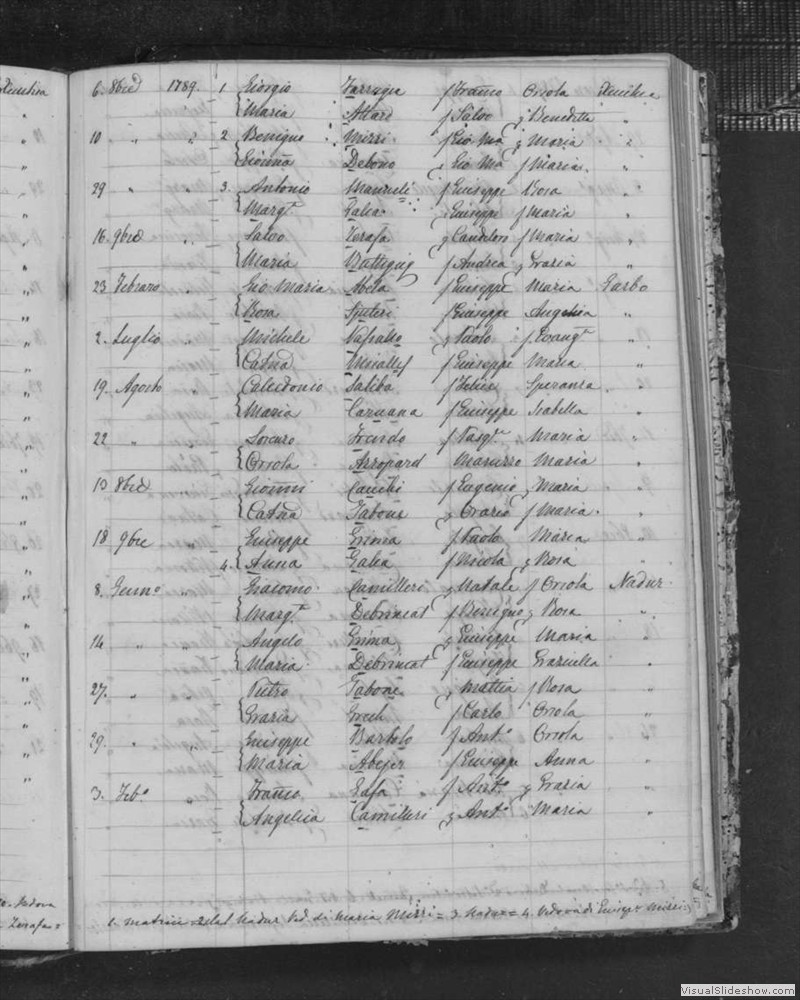 6. 8bre 1789. 1 Giorgio Farrugia f Franco Orsola Xeuchia
Maria Attard f Salvo Benedetta "
10 " " 2 Benigno Mizzi f Gio Ma Maria
Gionna Debono Gio Ma f Maria.
29 " 3. Antonio f Giuseppe Rosa
Marga. Galea Giuseppe f Maria "
16. 9bre " Salvo Zerafa f Maria "
Maria Buttigieg f Andrea Grazia "
23 Febraro Gio Maria Abela f Giuseppe Maria Garbo
Rosa Spiteri f Giuseppe Angelica "
2. Luglio " Michele Paolo f Evanga. "
Catna f Giuseppe Maria "
19. Agosto " Calcedonio Saliba f Felice Speranza "
Maria Caruana f Giuseppe Isabella "
22 " Lorenzo f Pasqle. Maria "
Orsola Azzopard Maurizio Maria "
10 8bre Gionni Cauchi f Eugenio Maria "
Catna Tabone Orazio f Maria. "
18. 9bre Giuseppe Grima f Paolo Maria "
4. Anna Galea f Nicola Rosa "
8. Genno " Giacomo Camilleri Natale f Orsola Nadur
Marga. Debrincat f Benigno Rosa "
14 " " Angelo Grima Giuseppe Maria "
Maria Debrincat f Giuseppe Graziella "
27. " Pietro Tabone Mattia f Rosa "
Grazia Grech f Carlo Orsola "
29. " " Giuseppe Bartolo f Anto. Orsola "
Maria Abejer f Giuseppe Anna "
3. Febo. Franco f Anto. Grazia "
Angelica Camilleri Anto Maria "
1. matrice = 2 dal Nadur Ved. di Maria Mizzi = 3. Nadur = 4. Vedova di Giuseppe Mizzi
Vedova
Zerafa =
VisualSlideshow.com